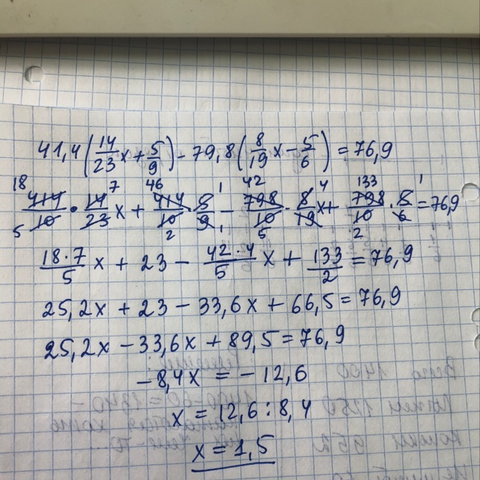 41,4(14/23 x + 5/9) - 79,8(8/19 x - 5/6) = 76,9
414/10 · 14/23 x + 414/10 · 5/9 - 798/10 · 8/19 x + 798/10 · 5/6 = 76,9
18·7/5 x + 23 - 42·4/5 x + 133/2 = 76,9
25,2x + 23 - 33,6x + 66,5 = 76,9
25,2x - 33,6x + 89,5 = 76,9
-8,4x = -12,6
x = 12,6 : 8,4
x = 1,5